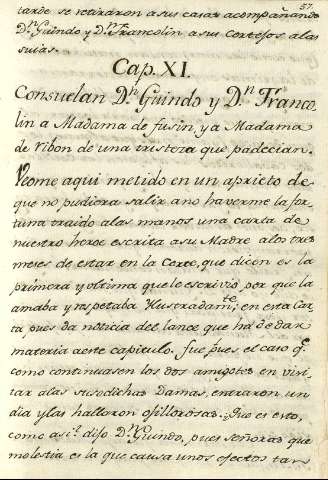 57.
tarde se retiraron a sus casas acompañando
Dn. Guindo y Dn. Francolin a sus Cortejos a las
suias.
Cap. XI.
Consuelan Dn. Guindo y Dn. Franco-
lin a Madama de fusin, y a Madama
de Ribon de una tristeza que padecian.
Veome aqui metido en un aprieto de
que no pudiera salir a no haverme la for-
tuna traido a las manos una carta de
nuestro heroe escrita a su Madre a los tres
meses de estar en la Corte, que dicen es la
primera y ultima que le escrivio, por que la
amaba y respetaba Ilustradamte.; en esta Car-
ta pues da noticia del lance que ha de dar
materia a este capitulo. fue pues el caso qe.
como continuasen los dos amigotes en visi-
tar a las susodichas Damas, entraron un
dia y las hallaron ojillorosas. Que es esto,
como asi? dijo Dn. Guindo, pues señoras que
molestia es la que causa unos efectos tan